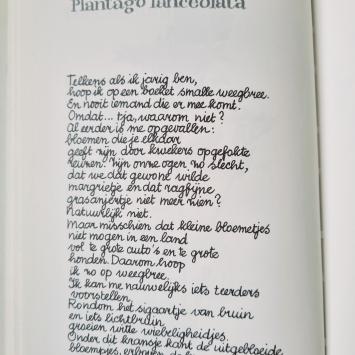 Plantago lanceolata
Telkens als ik jarig ben,
hoop ik op een boeket smalle weegbree.
En nooit iemand die er mee komt.
Omdat... tja, waarom niet?
Al eerder is me opgevallen:
bloemen die je elkaar
geeft zijn door kwekers opgefokte
reuzen. Zijn onze ogen zo slecht,
dat we dat gewone wilde
margrietje en dat ragfijne
grasanjertje niet meer zien?
Natuurlijk niet.
Maar misschien dat kleine bloemetjes
niet mogen in een land
vol te grote auto's en te grote
honden. Daarom hoop
ik zo op weegbree.
Ik kan me nauwelijks iets teerders
voorstellen.
Rondom het sigaartje van bruin
en iets lichtbruin
groeien witte wiebeligheidjes.
Onder dit kransje kant de uitgebloeide
bloempjes, erboven